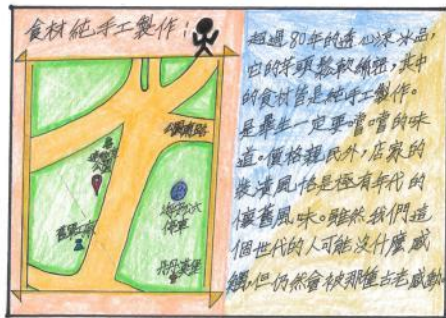 食材純手工製作！
超過80年的透心涼冰品，
它的芋頭鬆軟綿密，其中
的食材皆是純手工製作。
是畢生一定要嚐嚐的味
道。價格親民外，店家的
裝潢風格是極有年代的
懷舊風味。雖然我們這
個世代的人可能沒什麼感
觸，但仍然會被那種古老感動
公園南路
停車
丹丹漢堡